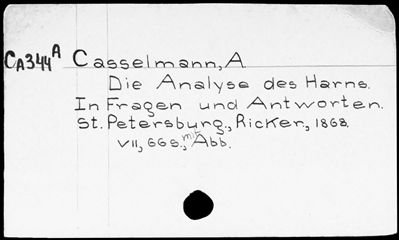 CA344A Casselmann, A
Die Analyse des Harns.
In Fragen und Antworten.
St. Petersburg., Ricker, 1868.
VII, 66 s., mit Abb.